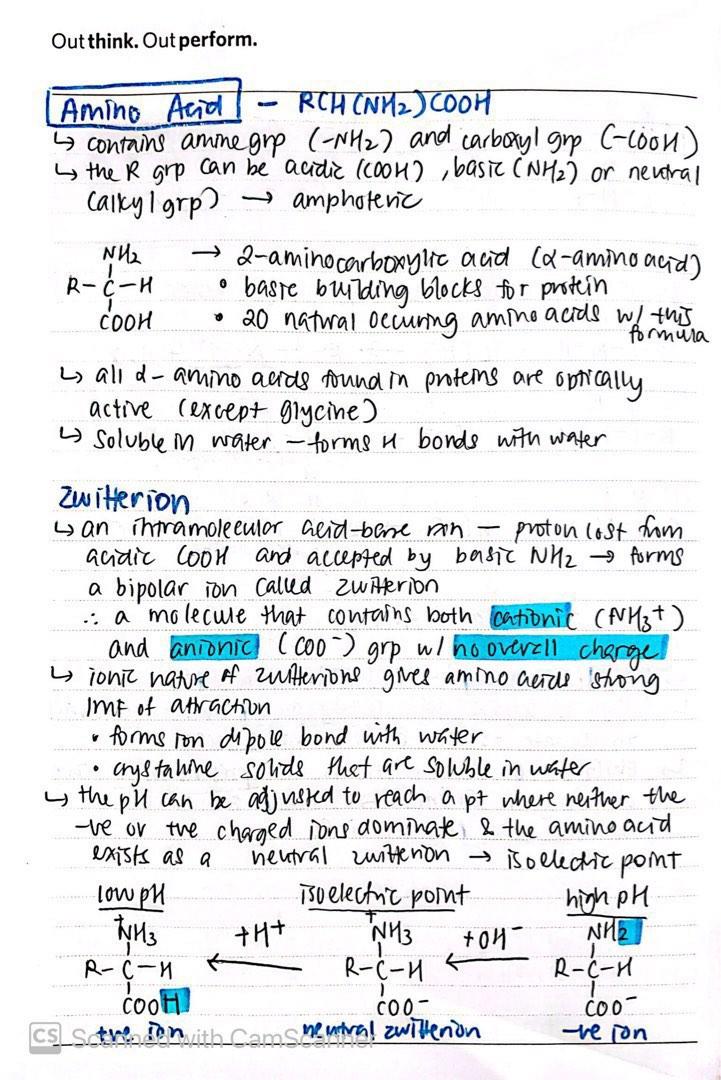 Outthink. Outperform.
Amino Acid - RCH(NH2)COOH
↳ contains amine grp (-NH2) and carboxyl grp (-COOH)
↳ the R grp can be acidic (COOH), basic (NH2) or neutral
(alkyl grp) → amphoteric
NH2
R-C-H
COOH
→ 2-aminocarboxylic acid (α-amino acid)
• basic building blocks for protein
• 20 natural occuring amino acids w/ this
formula
↳ all α-amino acids found in proteins are optically
active (except glycine)
↳ soluble in water - forms H bonds with water
Zwitterion
↳ an intramolecular acid-base rxn - proton lost from
acidic COOH and accepted by basic NH2 → forms
a bipolar ion called zwitterion
∴ a molecule that contains both cationic (NH3+)
and anionic (COO-) grp w/ no overall charge
↳ ionic nature of zwitterions gives amino acids strong
IMF of attraction
• forms ion dipole bond with water
• crystalline solids that are soluble in water
↳ the pH can be adjusted to reach a pt where neither the
-ve or tve charged ions dominate, & the amino acid
exists as a neutral zwitterion → isoelectric point
low pH isoelectric point high pH
+NH3 +H+ +NH3 +OH- NH2
R-C-H ← R-C-H ← R-C-H
COOH COO- COO-
tve ion neutral zwitterion -ve ion
CS Scanned with CamScanner